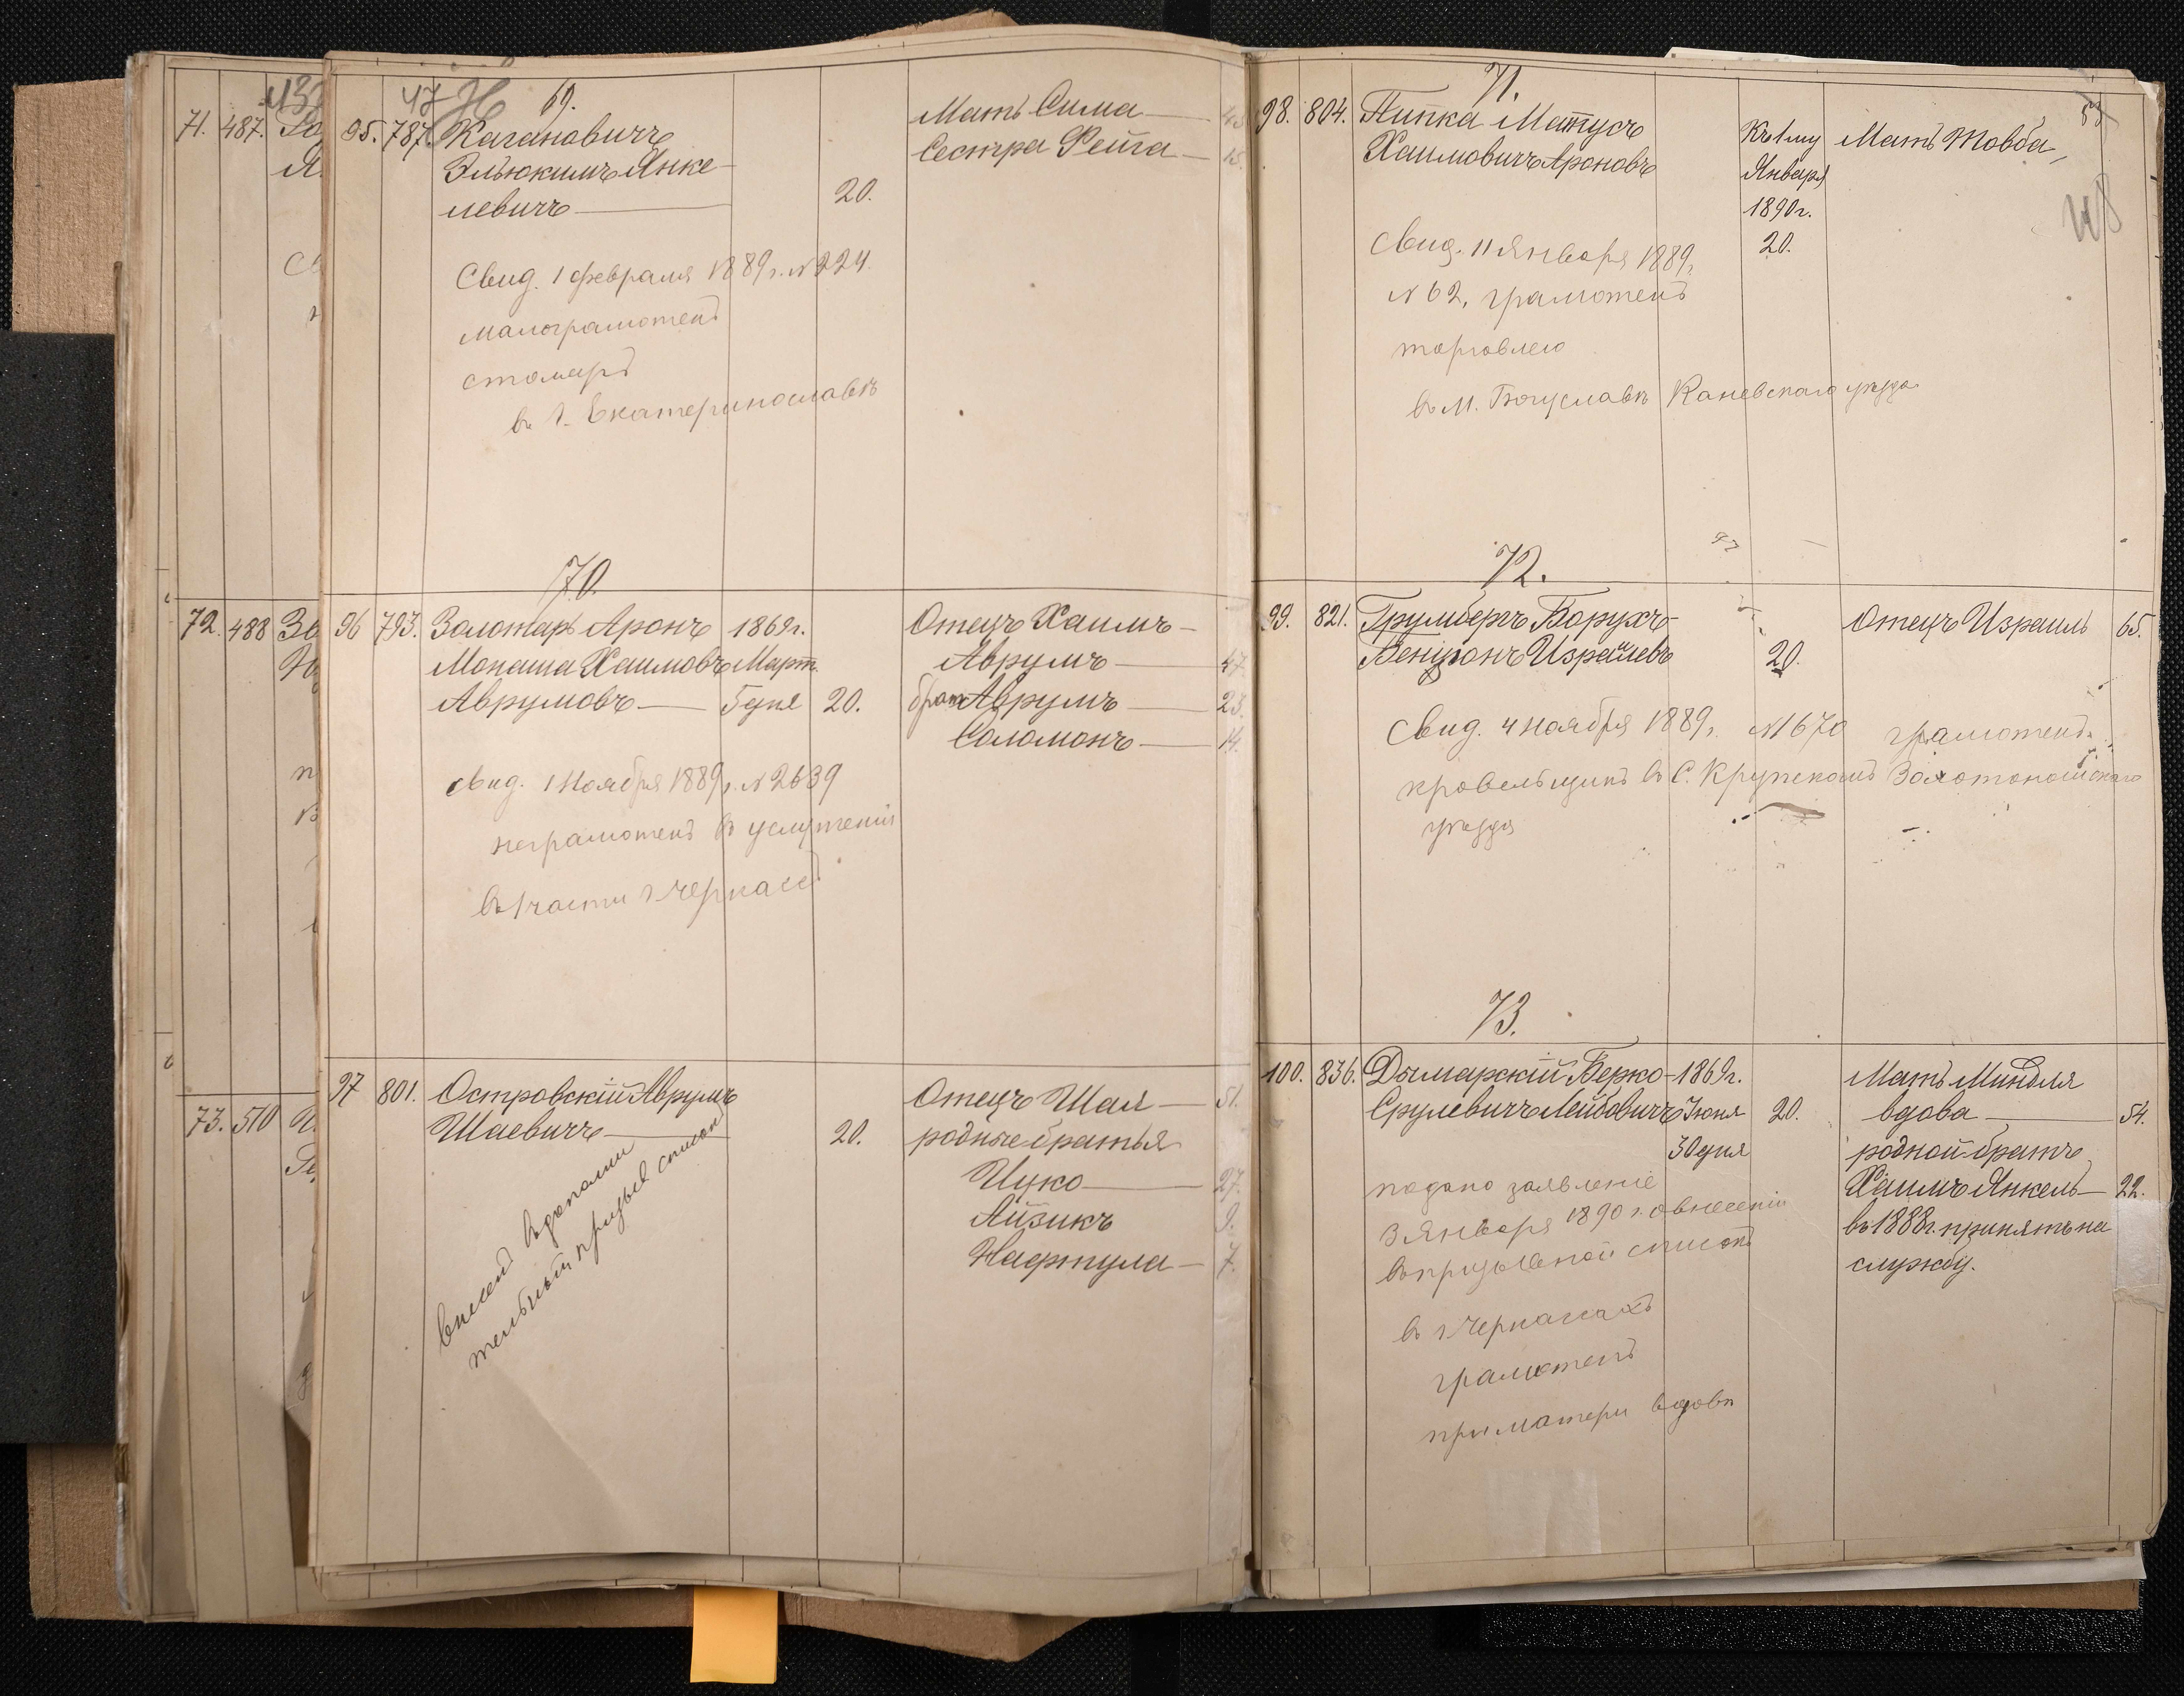 71. 487.
72. 488
73. 510
47
69.
95. 787. Кагановичъ
Эльюкимъ Янке-
левичъ
20.
Мать Сима
Сестра Фейга — 15.
Свид. 1 февраля 1889 г. № 224.
малограмотенъ
столяръ
въ г. Екатеринославѣ
70.
96 793. Золотарь Аронъ 1869г.
Монаша Хаимовъ Март.
Аврумовъ — 5 дня 20.
Отецъ Хаимъ —
Аврумъ — 47.
братъ Аврумъ — 23.
Соломонъ — 14.
свид. 1 Ноября 1889 г. № 2639
неграмотенъ въ услуженіи
въ 1 части г Черкассъ
97 801. Островскій Аврумъ
Шаевичъ — 20.
Отецъ Шая — 51.
родные братья
Ицко — 27.
Айзикъ 9.
Нафтула — 7.
внесенъ въ дополни
тельный призыв списокъ
71.
53
48
98. 804. Пипка Матусъ
Хаимовичъ Ароновъ
Къ 1му
Января
1890г.
20.
Мать Товба
Свид. 11 Января 1889 г.
№ 62, грамотенъ
торговлею
въ м. Богуславѣ Каневскаго уѣзда
72.
99. 821. Грумбергъ Борухъ-
Бенціонъ Израилевъ
20.
Отецъ Израиль 65.
Свид. 4 ноября 1889 г. № 1670 грамотенъ
кровельщикъ въ С. Крупскомъ Золотоношскаго
уѣзда
73.
100. 836. Дымарскій Берко- 1869г.
Срулевичъ Лейбовичъ Іюня 20.
30 дня
Мать Миндля
вдова — 54.
родной братъ
Хаимъ Янкель — 22.
въ 1888г. принятъ на
службу.
подано заявленіе
3 Января 1890 г. о внесеніи
въ призывной списокъ
въ г Черкассахъ
грамотенъ
при матери вдовѣ